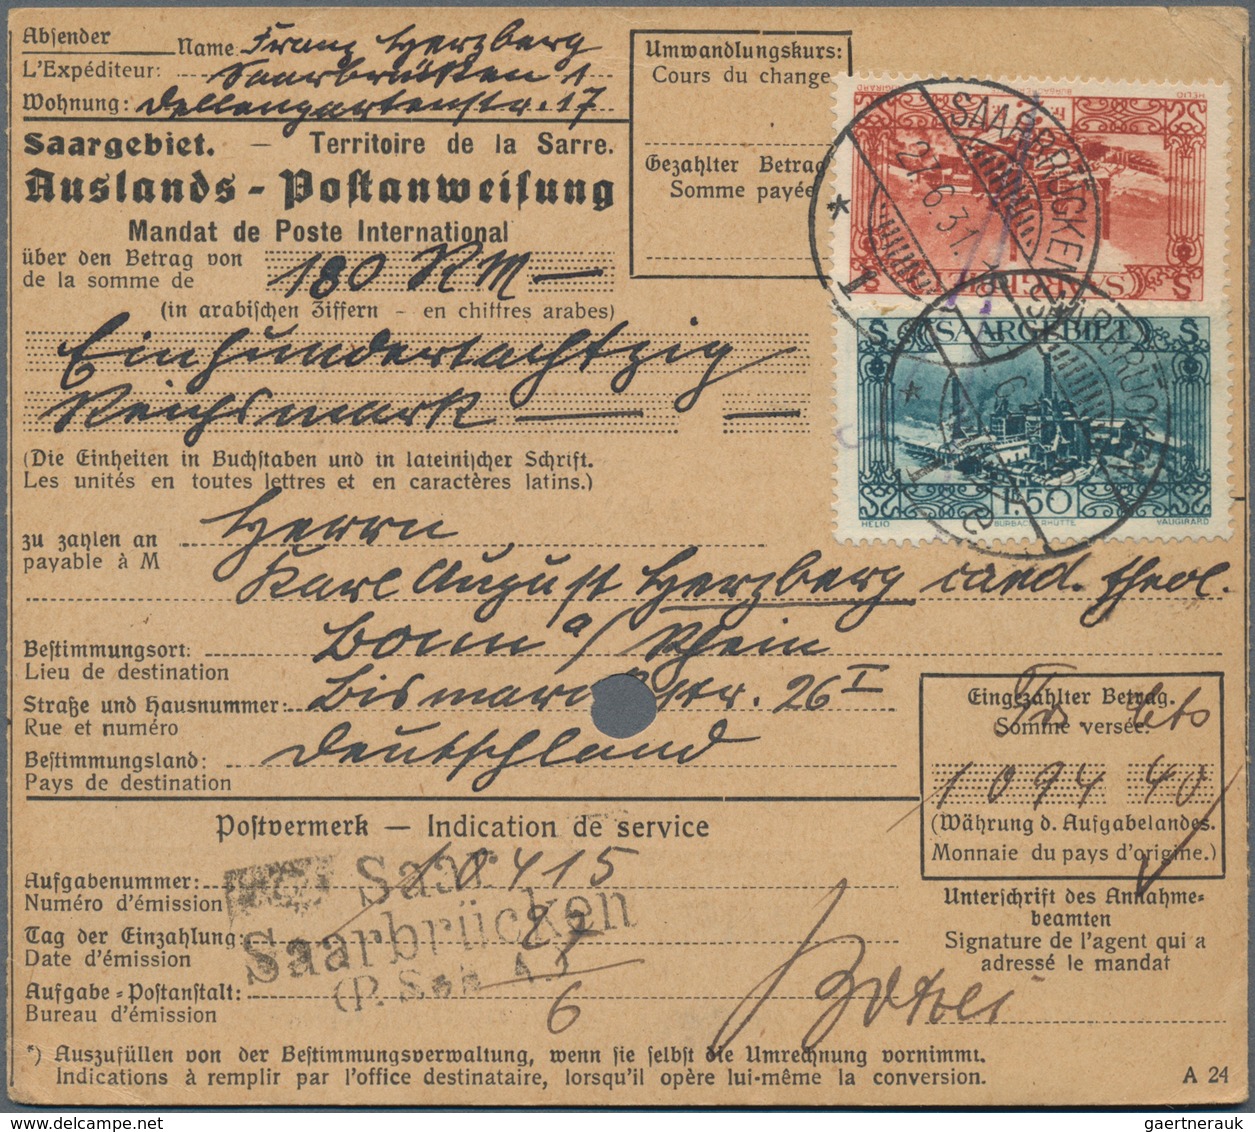 Absender Name Franz Herzberg
L'Expéditeur: Saarbrücken 1
Wohnung: Dellengartenstr. 17
Saargebiet. — Territoire de la Sarre.
Auslands - Postanweisung
Mandat de Poste International
über den Betrag von
de la somme de 180 RM —
(in arabischen Ziffern - en chiffres arabes)
Einhundertachtzig
Reichsmark — —
(Die Einheiten in Buchstaben und in lateinischer Schrift.
Les unités en toutes lettres et en caractères latins.)
zu zahlen an Herrn
payable à M
Karl August Herzberg cand. theol.
Bestimmungsort: Bonn a/Rhein
Lieu de destination
Straße und Hausnummer: Bismarckstr. 26 I
Rue et numéro
Bestimmungsland: Deutschland
Pays de destination
Umwandlungskurs:
Cours du change
Gezahlter Betrag
Somme payée
SAARBRÜCKEN
27.6.31.
* 1
SAARGEBIET
1.50
HELIO BURBACHERHÜTTE VAUGIRARD
SAARBRÜCKEN
Eingezahlter Betrag.
Somme versée.
Frs cts
1094 40
(Währung d. Aufgabelandes.
Monnaie du pays d'origine.)
Postvermerk — Indication de service
Aufgabenummer: 10415
Numéro d'émission
Tag der Einzahlung: 27
Date d'émission
Aufgabe-Postanstalt: 6
Bureau d'émission
Saar
Saarbrücken
Unterschrift des Annahme-
beamten
Signature de l'agent qui a
adressé le mandat
*) Auszufüllen von der Bestimmungsverwaltung, wenn sie selbst die Umrechnung vornimmt.
Indications à remplir par l'office destinataire, lorsqu'il opère lui-même la conversion.
A 24
gaertnerauk